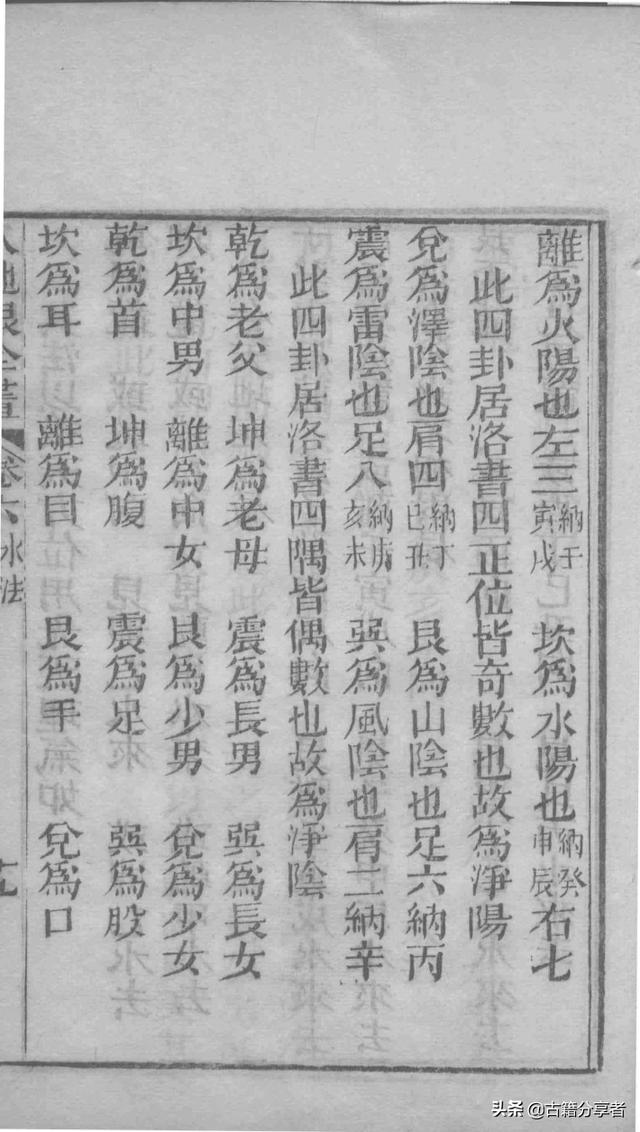 離為火陽也左三納壬寅戌　坎為水陽也納癸申辰右七
此四卦居洛書四正位皆奇數也故為淨陽
兌為澤陰也肩四納丁巳丑　艮為山陰也足六納丙
震為雷陰也足八納庚亥未　巽為風陰也肩二納辛
此四卦居洛書四隅皆偶數也故為淨陰
乾為老父　坤為老母　震為長男　巽為長女
坎為中男　離為中女　艮為少男　兌為少女
乾為首　坤為腹　震為足　巽為股
坎為耳　離為目　艮為手　兌為口
卷六水法
头条 @古籍分享者